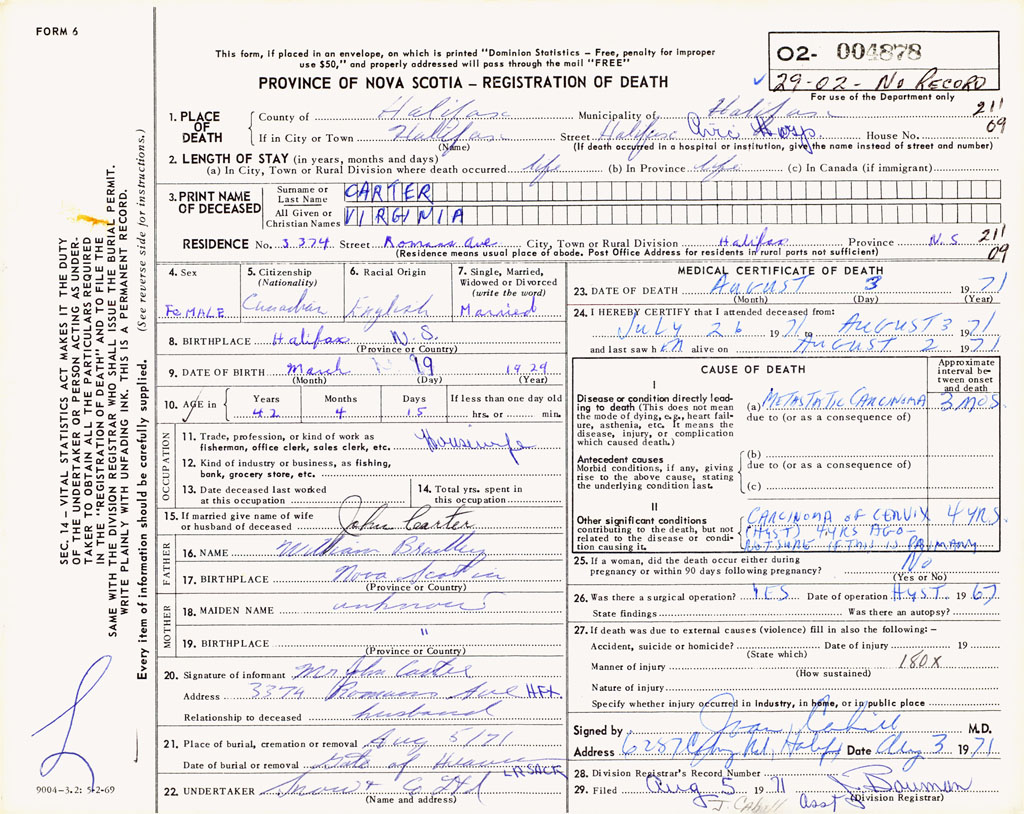 FORM 6
This form, if placed in an envelope, on which is printed "Dominion Statistics – Free, penalty for improper
use $50," and properly addressed will pass through the mail "FREE"
PROVINCE OF NOVA SCOTIA – REGISTRATION OF DEATH
02- 004878
29-02- NO RECORD
For use of the Department only
1. PLACE OF DEATH
County of Halifax Municipality of Halifax 211
If in City or Town Halifax Street Halifax Civic Hosp House No. 09
(Name) (If death occurred in a hospital or institution, give the name instead of street and number)
2. LENGTH OF STAY (in years, months and days)
(a) In City, Town or Rural Division where death occurred life (b) In Province life (c) In Canada (if immigrant)
3. PRINT NAME OF DECEASED
Surname or Last Name CARTER
All Given or Christian Names VIRGINIA
RESIDENCE No. 3374 Street Romans Ave City, Town or Rural Division Halifax Province N.S 211
(Residence means usual place of abode. Post Office Address for residents in rural parts not sufficient) 09
4. Sex
FEMALE
5. Citizenship
(Nationality)
Canadian
6. Racial Origin
English
7. Single, Married,
Widowed or Divorced
(write the word)
Married
8. BIRTHPLACE Halifax N.S.
(Province or Country)
9. DATE OF BIRTH March 19 1929
(Month) (Day) (Year)
10. AGE in
Years Months Days If less than one day old
42 4 15 hrs. or min.
OCCUPATION
11. Trade, profession, or kind of work as
fisherman, office clerk, sales clerk, etc. Housewife
12. Kind of industry or business, as fishing,
bank, grocery store, etc.
13. Date deceased last worked
at this occupation
14. Total yrs. spent in
this occupation
15. If married give name of wife
or husband of deceased John Carter
FATHER
16. NAME William Bradley
17. BIRTHPLACE Nova Scotia
(Province or Country)
MOTHER
18. MAIDEN NAME unknown
19. BIRTHPLACE "
(Province or Country)
20. Signature of informant Mr John Carter
Address 3374 Romans Ave HFX.
Relationship to deceased husband
21. Place of burial, cremation or removal Aug 5/71
Date of burial or removal Gate of Heaven
LR SACK
22. UNDERTAKER Snow + Co Ltd
(Name and address)
MEDICAL CERTIFICATE OF DEATH
23. DATE OF DEATH AUGUST 3 1971
(Month) (Day) (Year)
24. I HEREBY CERTIFY that I attended deceased from:
July 26 1971 to AUGUST 3 1971
and last saw her alive on AUGUST 2 1971
CAUSE OF DEATH
Approximate
interval be-
tween onset
and death
I
Disease or condition directly lead-
ing to death (This does not mean
the mode of dying, e.g., heart fail-
ure, asthenia, etc. It means the
disease, injury, or complication
which caused death.)
(a) METASTATIC CARCINOMA 3 MOS.
due to (or as a consequence of)
Antecedent causes
Morbid conditions, if any, giving
rise to the above cause, stating
the underlying condition last.
(b)
due to (or as a consequence of)
(c)
II
Other significant conditions
contributing to the death, but not
related to the disease or condi-
tion causing it.
CARCINOMA OF CERVIX 4 YRS.
(HYST) 4 YRS AGO-
NOT SURE IF THIS IS PRIMARY
25. If a woman, did the death occur either during
pregnancy or within 90 days following pregnancy? No
(Yes or No)
26. Was there a surgical operation? YES Date of operation HYST 1967
State findings Was there an autopsy?
27. If death was due to external causes (violence) fill in also the following: –
Accident, suicide or homicide? Date of injury 19
(State which)
Manner of injury 180X
(How sustained)
Nature of injury
Specify whether injury occurred in industry, in home, or in public place
Signed by Joan M.D.
Address 6287 Halifax Date Aug 3 1971
28. Division Registrar's Record Number
29. Filed Aug 5 1971 J. Bauman
J. Cahill Asst (Division Registrar)
SEC. 14 – VITAL STATISTICS ACT MAKES IT THE DUTY
OF THE UNDERTAKER OR PERSON ACTING AS UNDER-
TAKER TO OBTAIN ALL THE PARTICULARS REQUIRED
IN THE "REGISTRATION OF DEATH" AND TO FILE THE
SAME WITH THE DIVISION REGISTRAR WHO SHALL ISSUE THE BURIAL PERMIT.
WRITE PLAINLY WITH UNFADING INK. THIS IS A PERMANENT RECORD.
Every item of information should be carefully supplied. (See reverse side for instructions.)
9004-3.2: 5-2-69